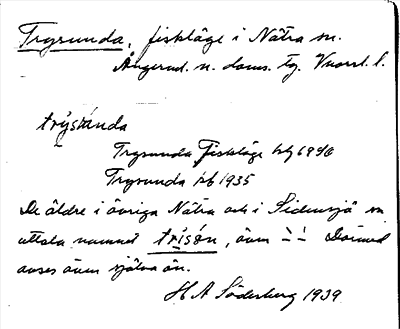 Trysunda, fiskläge i Nätra sn.
Ångerml. n. doms. tg. Vnorrl. l.
trýsùnda
Trysunda Fiskläge
Trysunda jrb 1935
De äldre i övriga Nätra och i Sidensjö sn
uttala namnet trísön, även ` ` Därmed
avses även själva ön.
H A Söderberg 1939